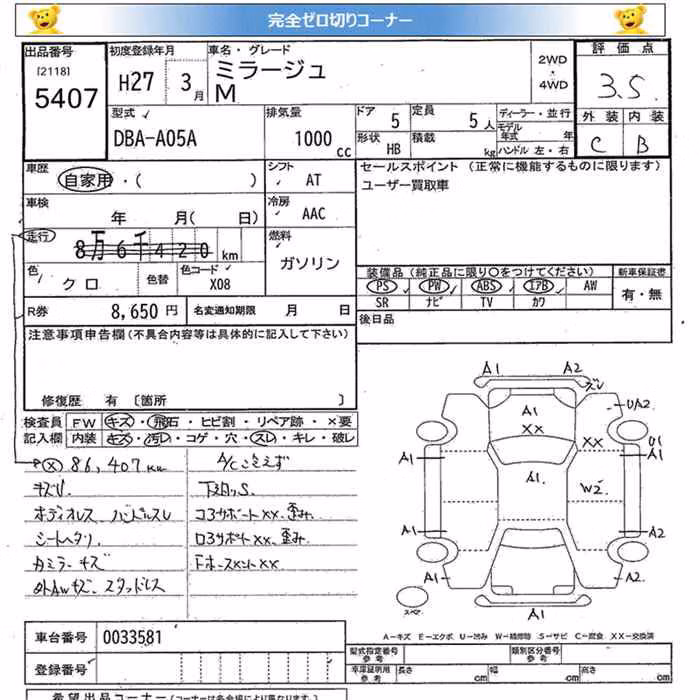 完全ゼロ切りコーナー
出品番号
[2118]
5407
初度登録年月
H27 3月
車名・グレード
ミラージュ
M
2WD
・
4WD
評価点
3.5
外装 内装
C B
型式
DBA-A05A
排気量
1000 cc
ドア 5
定員 5人
形状 HB
積載 kg
ディーラー・並行
モデル年式 年
ハンドル 左・右
車歴
自家用・( )
シフト
AT
セールスポイント (正常に機能するものに限ります)
ユーザー買取車
車検
年 月( 日)
冷房
AAC
走行
8万6千420 km
燃料
ガソリン
色
クロ
色替
色コード
X08
装備品(純正品に限り○をつけてください)
新車保証書
PS PW ABS エアB AW
SR ナビ TV カワ
有・無
R券
8,650円
名変通知期限 月 日
後日品
注意事項申告欄(不具合内容等は具体的に記入して下さい)
修復歴 有 〔箇所 〕
検査員
記入欄
FW キズ・飛石・ヒビ割・リペア跡・×要
内装 キズ・汚レ・コゲ・穴・スレ・キレ・破レ
86,407km
キズU
ボディオレス ハンドルスレ
シートヘタリ
カミラーキズ
外AWキズ、スタッドレス
A/Cこえず
下廻りS
コアサポートXX、歪み
ロアサポートXX、歪み
A1 A2
ズレ
UA2
A1
XX
XX
U1
A1
A1
A1
W2
A1
A2
A1
A2
A1
スペア
A-キズ E-エクボ U-凹み W-補修跡 S-サビ C-腐食 XX-交換済
車台番号
0033581
登録番号
型式指定番号
参考
類別区分番号
参考
車庫証明用
参考
長さ cm
幅 cm
高さ cm
希望出品コーナー